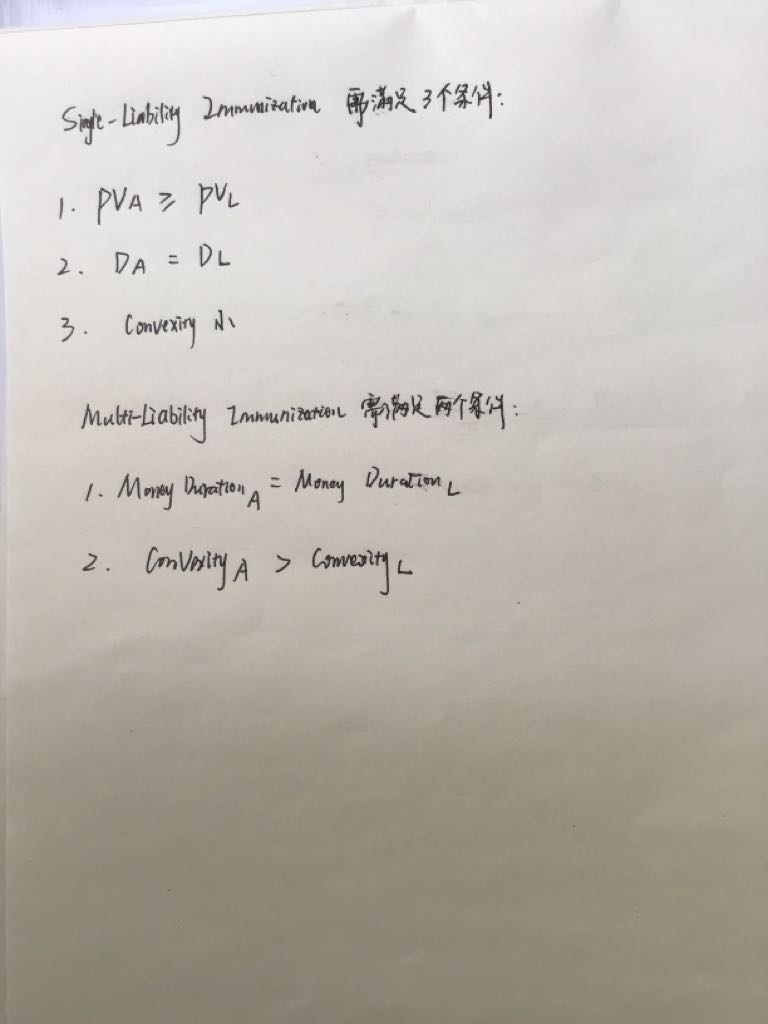 Single-Liability Immunization 需满足3个条件:
1. PVA ≥ PVL
2. DA = DL
3. Convexity 小
Multi-Liability Immunization 需满足两个条件:
1. Money DurationA = Money DurationL
2. ConvexityA > ConvexityL